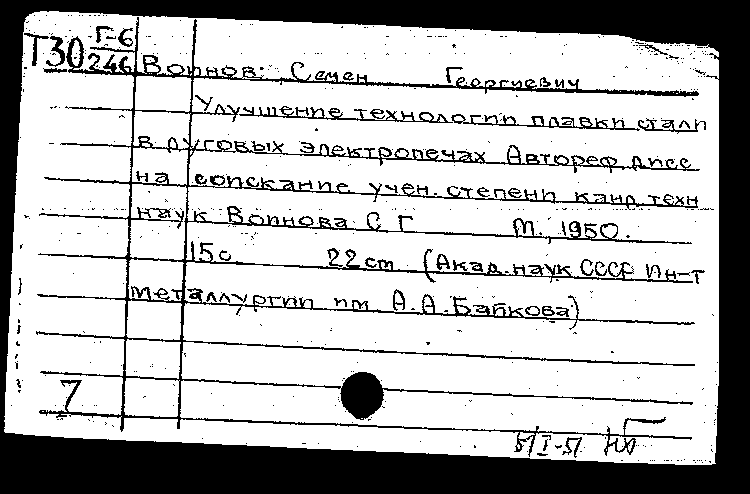 Т30 Г-6
246
Воинов: Семен Георгиевич
Улучшение технологии плавки стали
в дуговых электропечах Автореф. дисс
на соискание учен. степени канд. техн
наук Воинова С Г М., 1950.
15 с. 22 cm (Акад. наук СССР Ин-т
металлургии им. А.А. Байкова)
7
5/I-51